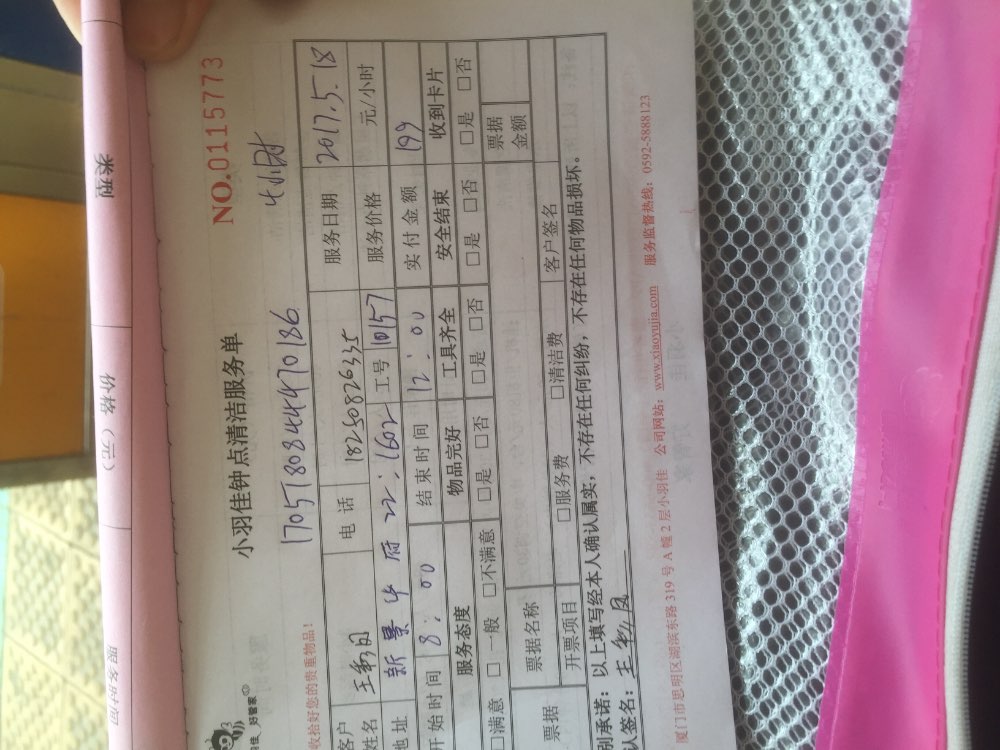 类型
价格（元）
NO.0115773
小羽佳钟点清洁服务单
好管家
170518084470186 4小时
收拾好您的贵重物品！
客户姓名 电话 18250826335 服务日期 2017.5.18
地址 新景华府22:1602 工号 10157 服务价格 元/小时
开始时间 8:00 结束时间 12:00 实付金额 199
服务态度 物品完好 工具齐全 安全结束 收到卡片
□满意 □一般 □不满意 □是 □否 □是 □否 □是 □否 □是 □否
票据 票据名称 票据金额
开票项目 □服务费 □清洁费 客户签名
别承诺：以上填写经本人确认属实，不存在任何纠纷，不存在任何物品损坏。
认签名：
厦门市思明区湖滨东路319号A幢2层小羽佳 公司网站：www.xiaoyujia.com 服务监督热线：0592-5888123